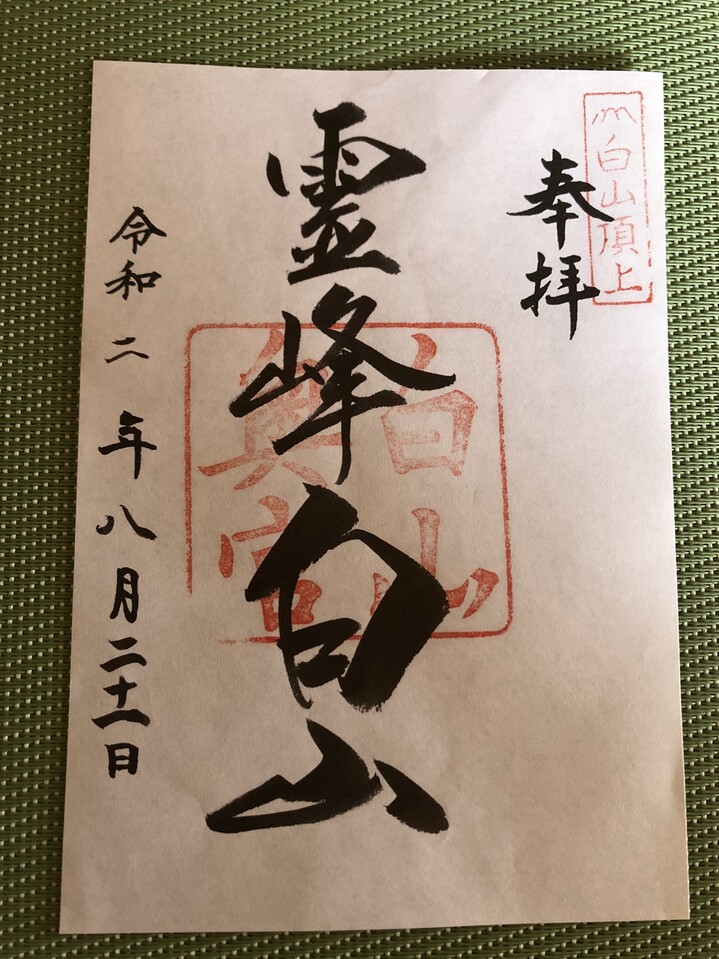 白山頂上
奉拝
霊峰白山
白山
奥宮
令和二年八月二十一日